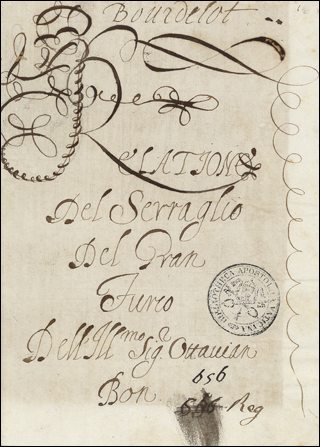 Bourdelot
RELATIONE
Del Serraglio
Del Gran
Turco
Dell Ill.mo Sig.r Ottavian
Bon.
656
666 Reg
BIBLIOTHECA APOSTOLICA VATICANA